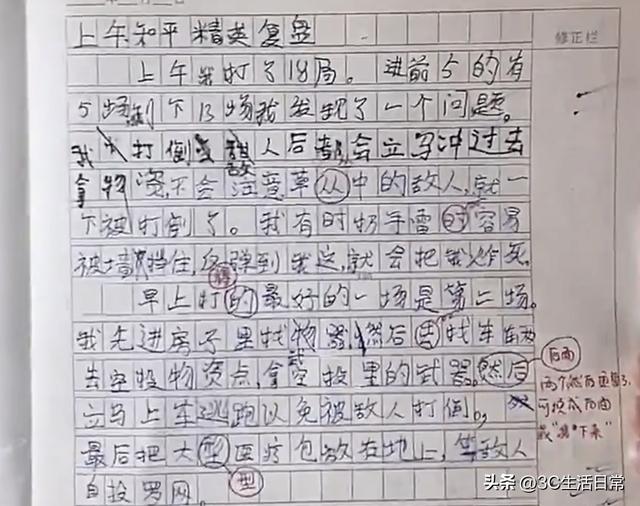 上午和平精英复盘
修正栏
上午我打了18局。进前5的有
5场剩下13场我发现了一个问题。
我打倒敌人后都会立马冲过去
拿物资,不会注意草丛中的敌人,就一
下被打倒了。我有时扔手雷时容易
被墙挡住,反弹到我这,就会把我炸死。
得
早上打的最好的一场是第二场。
我先进房子里找物器,然后去找车
后面
去空投物资点,拿空投里的武器。然后
两个然后重复了,
立马上车逃跑以免被敌人打倒。
可换成后面
或"接下来"
最后把大型医疗包放在地上,等敌人
型
自投罗网。
头条 @3C生活日常